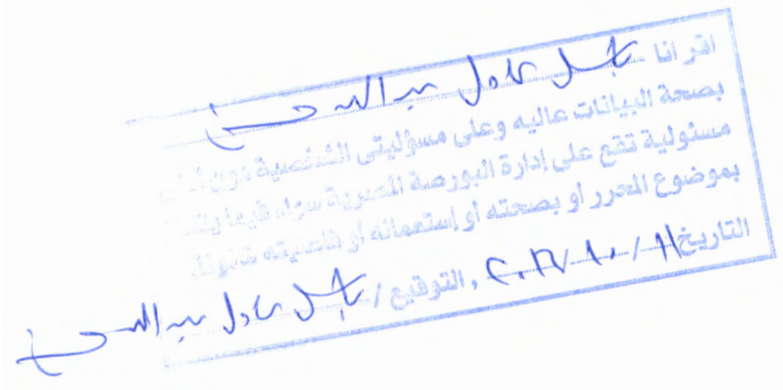 اقر انا باسل عادل عبدالله
بصحة البيانات عاليه وعلى مسؤليتى الشخصية دون أدنى
مسئولية تقع على إدارة البورصة المصرية سواء فيما يتعلق
بموضوع المحرر أو بصحته او إستعماله او فاعليته قانونا.
التاريخ ١١/ ١٠/ ٢٠١٧ , التوقيع / باسل عادل عبدالله